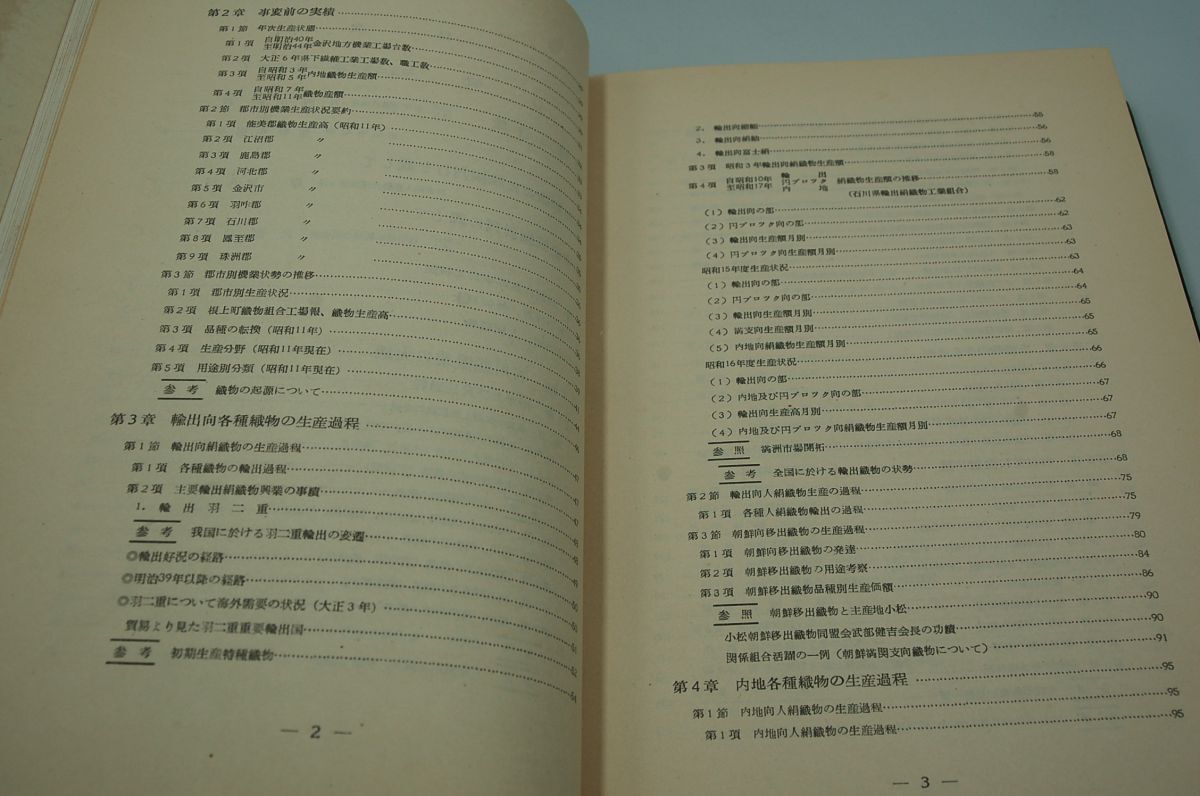 第2章 事変前の実績
第1節 年次生産状態
第1項 自明治40年至明治44年金沢地方機業工場台数
第2項 大正6年県下繊維工業工場数、職工数
第3項 自昭和3年至昭和5年内地織物生産額
第4項 自昭和7年至昭和11年織物産額
第2節 郡市別機業生産状況要約
第1項 能美郡織物生産高(昭和11年)
第2項 江沼郡 〃
第3項 鹿島郡 〃
第4項 河北郡 〃
第5項 金沢市 〃
第6項 羽咋郡 〃
第7項 石川郡 〃
第8項 鳳至郡 〃
第9項 珠洲郡 〃
第3節 郡市別機業状勢の推移
第1項 郡市別生産状況
第2項 根上町織物組合工場報、織物生産高
第3項 品種の転換(昭和11年)
第4項 生産分野(昭和11年現在)
第5項 用途別分類(昭和11年現在)
参考 織物の起源について
第3章 輸出向各種織物の生産過程
第1節 輸出向絹織物の生産過程
第1項 各種織物の輸出過程
第2項 主要輸出絹織物興業の事績
1. 輸出羽二重
参考 我国に於ける羽二重輸出の変遷
◎輸出好況の経路
◎明治39年以降の経路
◎羽二重について海外需要の状況(大正3年) 50
貿易より見た羽二重重要輸出国 51
参考 初期生産特種織物 54
— 2 —
2. 輸出向縮緬 55
3. 輸出向絹紬 56
4. 輸出向富士絹 56
第3項 昭和3年輸出向絹織物生産額 58
第4項 自昭和10年至昭和17年 輸出円ブロツク内地 絹織物生産額の推移 58
(石川県輸出絹織物工業組合)
(1)輸出向の部 62
(2)円ブロツク向の部 62
(3)輸出向生産額月別 63
(4)円ブロツク向生産額月別 63
昭和15年度生産状況 63
(1)輸出向の部 64
(2)円ブロツク向の部 64
(3)輸出向生産額月別 65
(4)満支向生産額月別 65
(5)内地向絹織物生産額月別 65
昭和16年度生産状況 66
(1)輸出向の部 66
(2)内地及び円ブロツク向の部 67
(3)輸出向生産高月別 67
(4)内地及び円ブロツク向絹織物生産額月別 67
参照 満洲市場開拓 68
参考 全国に於ける輸出織物の状勢 68
第2節 輸出向人絹織物生産の過程 75
第1項 各種人絹織物輸出の過程 75
第3節 朝鮮向移出織物の生産過程 79
第1項 朝鮮向移出織物の発達 80
第2項 朝鮮移出織物の用途考察 84
第3項 朝鮮移出織物品種別生産価額 86
参照 朝鮮移出織物と主産地小松 90
小松朝鮮移出織物同盟会武部健吉会長の功績 90
関係組合活躍の一例(朝鮮満関支向織物について) 91
第4章 内地各種織物の生産過程 95
第1節 内地向人絹織物の生産過程 95
第1項 内地向人絹織物の生産過程 95
— 3 —